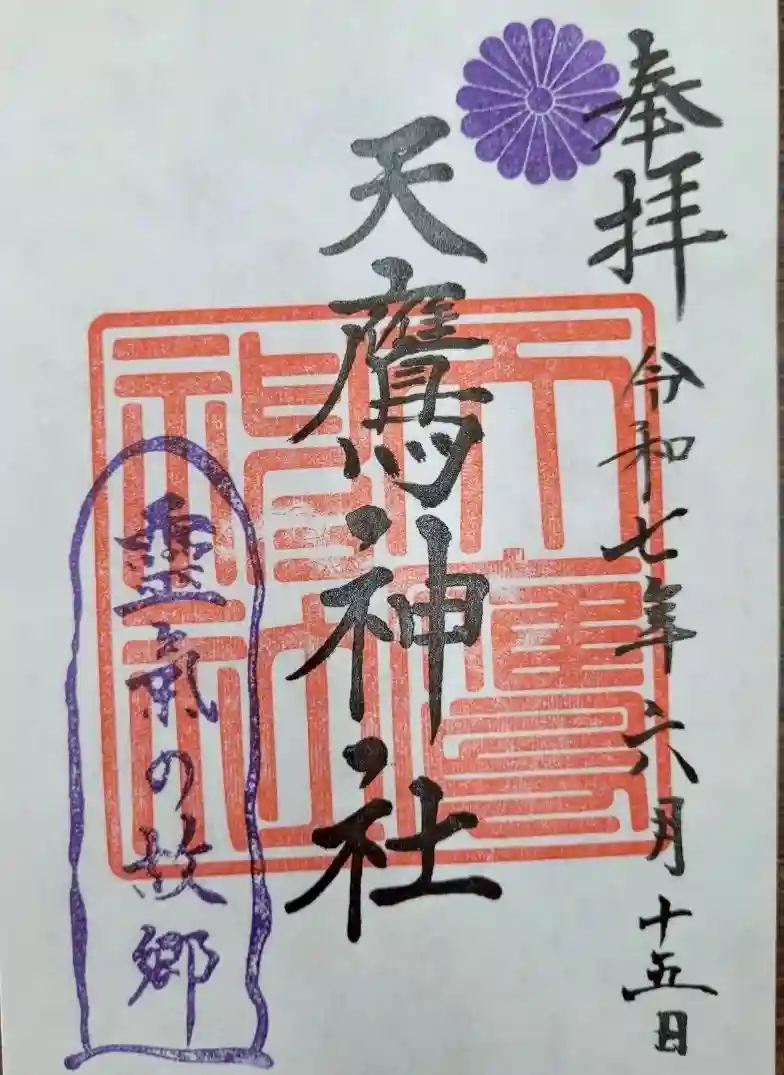 奉拝
令和七年六月十五日
天鷹神社
天鷹神社
霊気の故郷